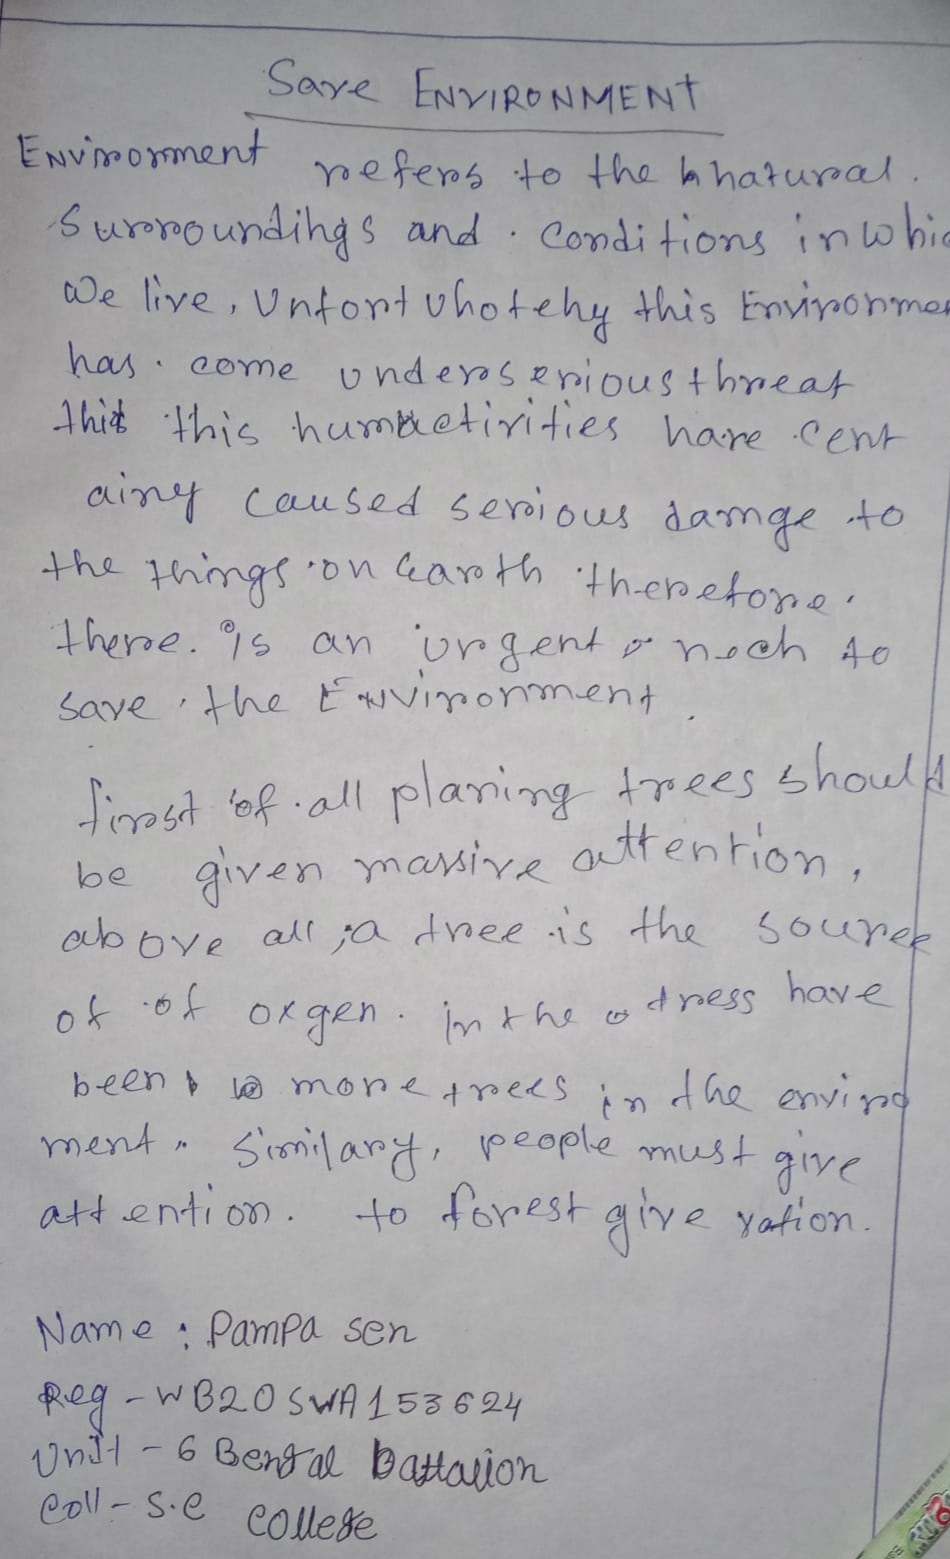 Save ENVIRONMENT
Environment refers to the natural.
Surroundings and. Conditions in whic
We live, Unfortuhotehy this Environmen
has. come under serious threat
this this humactivities have cent
ainy caused serious damge to
the things on Earth therefore.
there. is an urgent noch to
save the Environment.
first of all planing trees should
be given massive attention,
above all, a tree is the source
of of oxgen. in the tress have
been more trees in the enviro
ment. Similary, people must give
attention. to forest give ration.
Name : Pampa sen
Reg - WB20SWA153624
Unit - 6 Bengal Battalion
Coll - S.C College